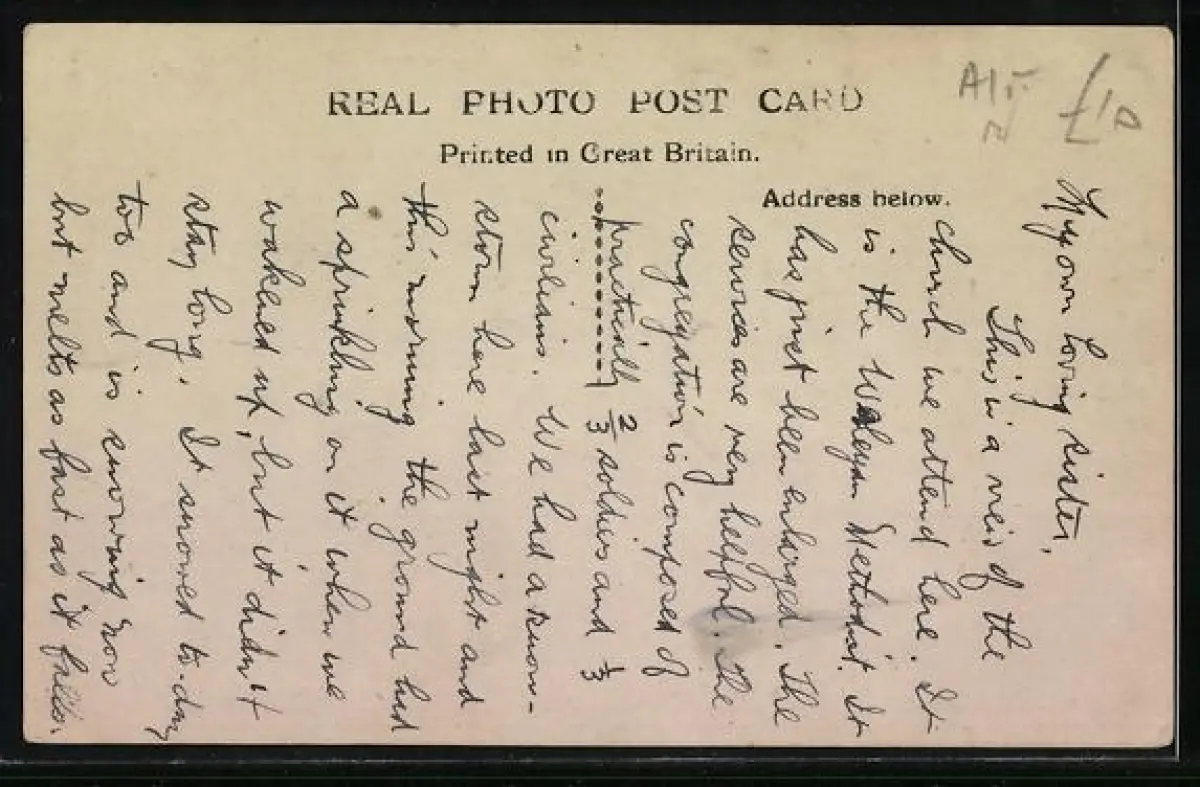 REAL PHOTO POST CARD
Printed in Great Britain.
Address below.
£10
My own loving sister,
This is a view of the
church we attend here. It
is the Wesleyan Methodist. It
has just been enlarged. The
services are very helpful. The
congregation is composed of
practically 2/3 soldiers and 1/3
civilians. We had a snow-
storm here last night and
this morning the ground had
a sprinkling on it when we
wakened up, but it didn't
stay long. It snowed to-day
too and is snowing now
but melts as fast as it falls.